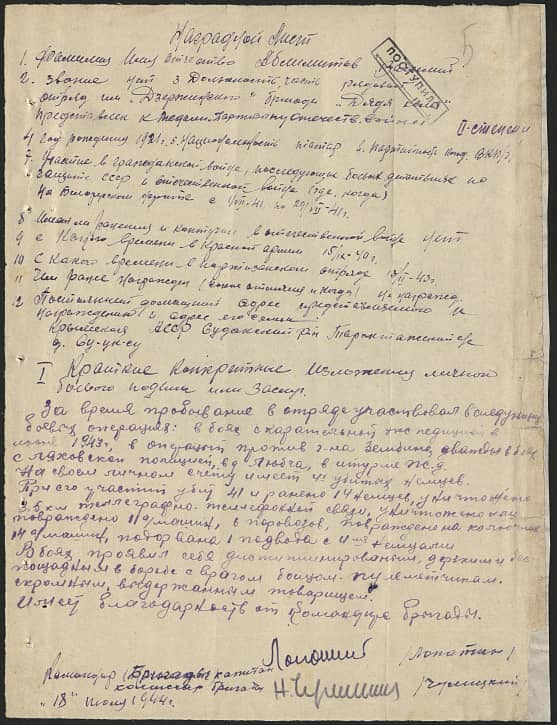 Наградной Лист
1. Фамилия Имя отчество
ПОСТУПИЛО
5
2. Звание нет 3 Должность, часть рядовой
отряд им. "Дзержинского" бригады "Дядя Коля"
Представлен к медали Партизану Отечеств. Войны
II-степени
4 год рождения 1921 г. 5. Национальность татар 6. Партийность канд. ВКП/б/
7. Участие в гражданской войне, последующих боевых действиях по
защите СССР и отечественной войне (где, когда)
На Белорусском фронте с
8 Имеет ли ранения и контузии в отечественной войне нет
9 с Какого времени в Красной армии 15/IX-40 г.
10 С какого времени в партизанском отряде
11 Чем ранее награжден (какие отличия и когда) Не награжд.
12 Постоянный домашний адрес представляемого к
награждению и адрес его семьи:
Крымская АССР Судакский р-н
д.
I Краткие Конкретные изложения личного
боевого подвига или Заслуг.
За время пребывание в отряде участвовал в следующих
боевых операциях: в боях с карательной экспедицией в
1943 г., в операции против г-на Зембине, дважды в боях
с Ляховской полицией, в д. Любча, в штурме ж.д.
На своем личном счету имеет 4х убитых немцев.
При его участии убит 41 и ранено 14 немцев, уничтожено
3,5 км телеграфно-телефонной связи, уничтожено или
повреждено 11 а/машин, 2 паровозов, повреждено на
14 а/машин, подорвана 1 подвода с 4мя немцами
В боях проявил себя дисциплинированым, дерзким и бес-
пощадным в борьбе с врагом бойцом-пулеметчикам.
скромным, выдержанным товарищем.
Имеет благодарность от командира бригады.
Командир бригады капитан
Лопатин
/Лопатин/
комиссар бригады
/Чулицкий/
"18" июля 1944 г.